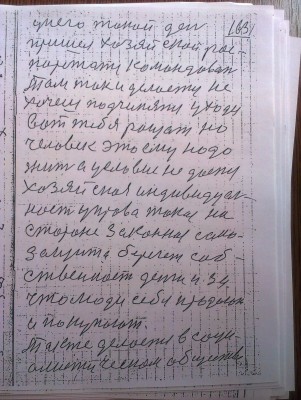 у него такой ден 163
пришел хозяйской рас-
паржати командоват
Там так и делаеть не
хочеш подчиняти уходи
Вот тебя рощат но
человек этоему надо
жит а условие не дают
хозяйская индивидуал-
ность управа такая на
стороне законная само-
защита береги соб-
ственност деги и за
что люди себя продают
и покупают.
Также делаеть в соци-
алистическом обществе